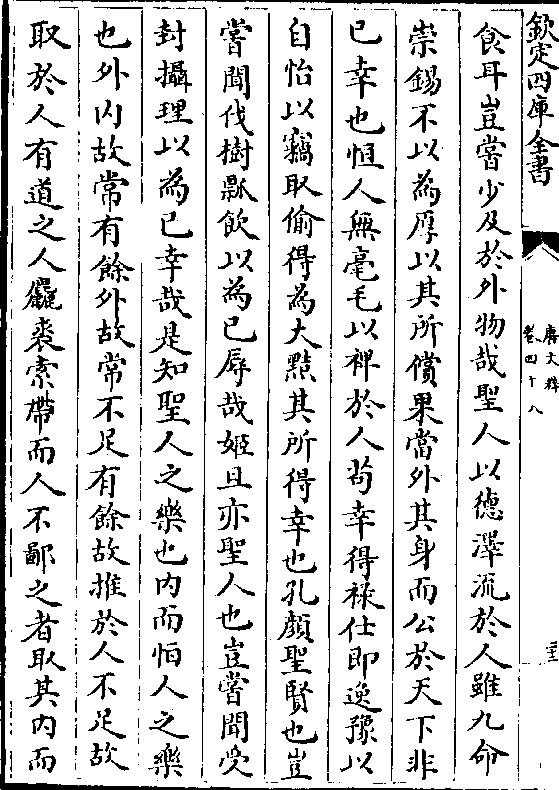 欽定四庫全書
唐文粹
卷四十八
食耳豈嘗少及於外物哉聖人以德澤流於人雖九命
崇錫不以為厚以其所償果當外其身而公於天下非
已幸也恒人無毫毛以裨於人茍幸得祿仕即逸豫以
自怡以竊取偷得為大黠其所得幸也孔顔聖賢也豈
嘗聞伐樹瓢飲以為已辱哉姬旦亦聖人也豈嘗聞受
封攝理以為已幸哉是知聖人之樂也内而恒人之樂
也外内故常有餘外故常不足有餘故推於人不足故
取於人有道之人麤裘索帶而人不鄙之者取其内而